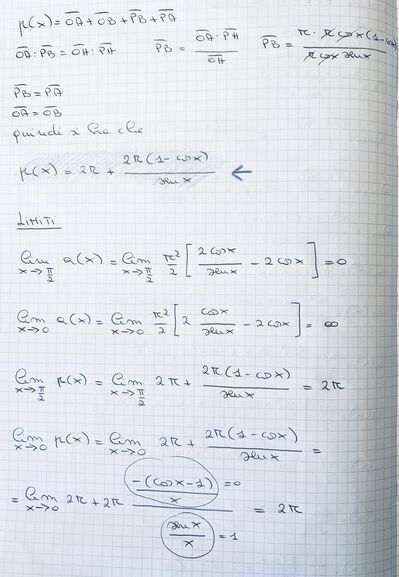 p(x) = OA + OB + PB + PA
OA · PB = OH · PH    PB = OA · PH / OH    PB = r · r cos x (1 - cos / r cos x sen x
PB = PA
OA = OB
quindi si ha che
p(x) = 2r + 2r(1 - cos x) / sen x ←
LIMITI
lim x→π/2 a(x) = lim x→π/2 r²/2 [ 2 cos x / sen x - 2 cos x ] = 0
lim x→0 a(x) = lim x→0 r²/2 [ 2 cos x / sen x - 2 cos x ] = ∞
lim x→π/2 p(x) = lim x→π/2 2r + 2r(1 - cos x) / sen x = 2r
lim x→0 p(x) = lim x→0 2r + 2r(1 - cos x) / sen x =
= lim x→0 2r + 2r -(cos x - 1) / x = 0 / sen x / x = 1 = 2r